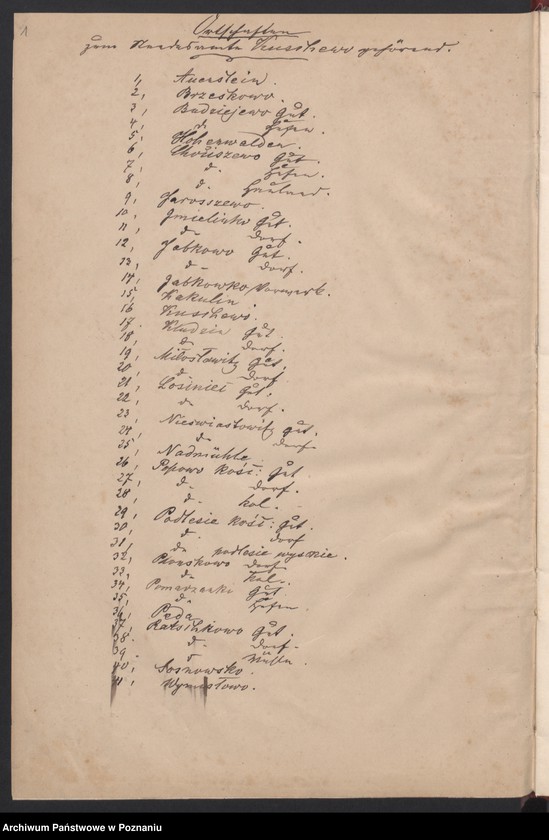 1
Ortschaften
zum Standesamte Kuschewo gehörend.
1, Auerstein.
2, Brzeskowo.
3, Budziejewo Gut.
4, d.
5, Hohenwalden.
6, Gut.
7, d.
8, d. Hauland.
9, Jarosszewo.
10, Gut.
11, d. Dorf.
12, Jabkowo Gut.
13, d. Dorf.
14, Jabkowko Vorwerk.
15, Kakulin.
16 Kuschewo.
17. Gut.
18, d. Dorf.
19, Miłosławitz Gut,
20, d. Dorf
21, Łosiniec Gut,
22, d. Dorf.
23
24, Nieswiastowitz Gut.
25, d. Dorf
26, Nadmühle
27, Popowo kość: Gut.
28, d. Dorf.
d. kol.
29, Podlesie kość: Gut.
30, d. Dorf
31, d. podlesie wyskie.
32, Dorf
33, d. kol.
34, Pomarzanki Gut
35, d.
36,
37, Gut.
38. d. Dorf.
39. d. Mühle.
40, Sosnowsko.
41, Wymisłowo.
Archiwum Państwowe w Poznaniu